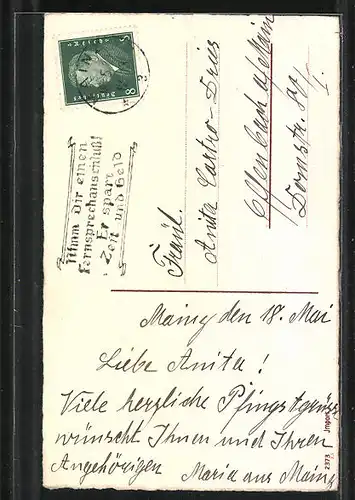 Nimm Dir einen
Fernsprechanschluß!
Er spart
Zeit und Geld
8
Deutsches
Fräul.
Anita Castro-Dreis
Offenbach a/Main
Domstr.
I.
Mainz den 18. Mai
Liebe Anita!
Viele herzliche Pfingstgrüsse
wünscht Ihnen und Ihren
Angehörigen Maria aus Mainz
2373 Import